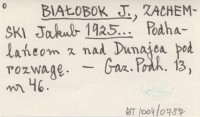 BIAŁOBOK J., ZACHEM-
SKI Jakub 1925... Podha-
lańcom z nad Dunajca pod
rozwagę. — Gaz. Podh. 13,
nr 46.
BT 1004/0787